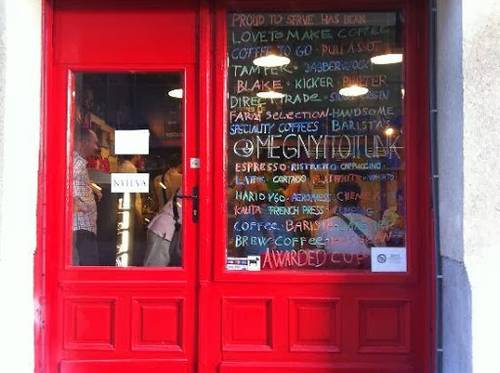 PROUD TO SERVE HAS BEAN
LOVE TO MAKE COFFEE
COFFEE TO GO · PULL A SHOT
TAMPER · JABBERWOCK
BLAKE · KICKER
DIRECT TRADE
FARM SELECTION · HANDSOME
SPECIALITY COFFEES BARISTAS
MEGNYITOTTUNK
ESPRESSO · RISTRETTO CAPPUCCINO
LATTE CORTADO
HARIO V60 · AEROPRESS CHEMEX
KALITA FRENCH PRESS
COFFEE BARISTA
BREW COFFEE
AWARDED CUP
NYITVA